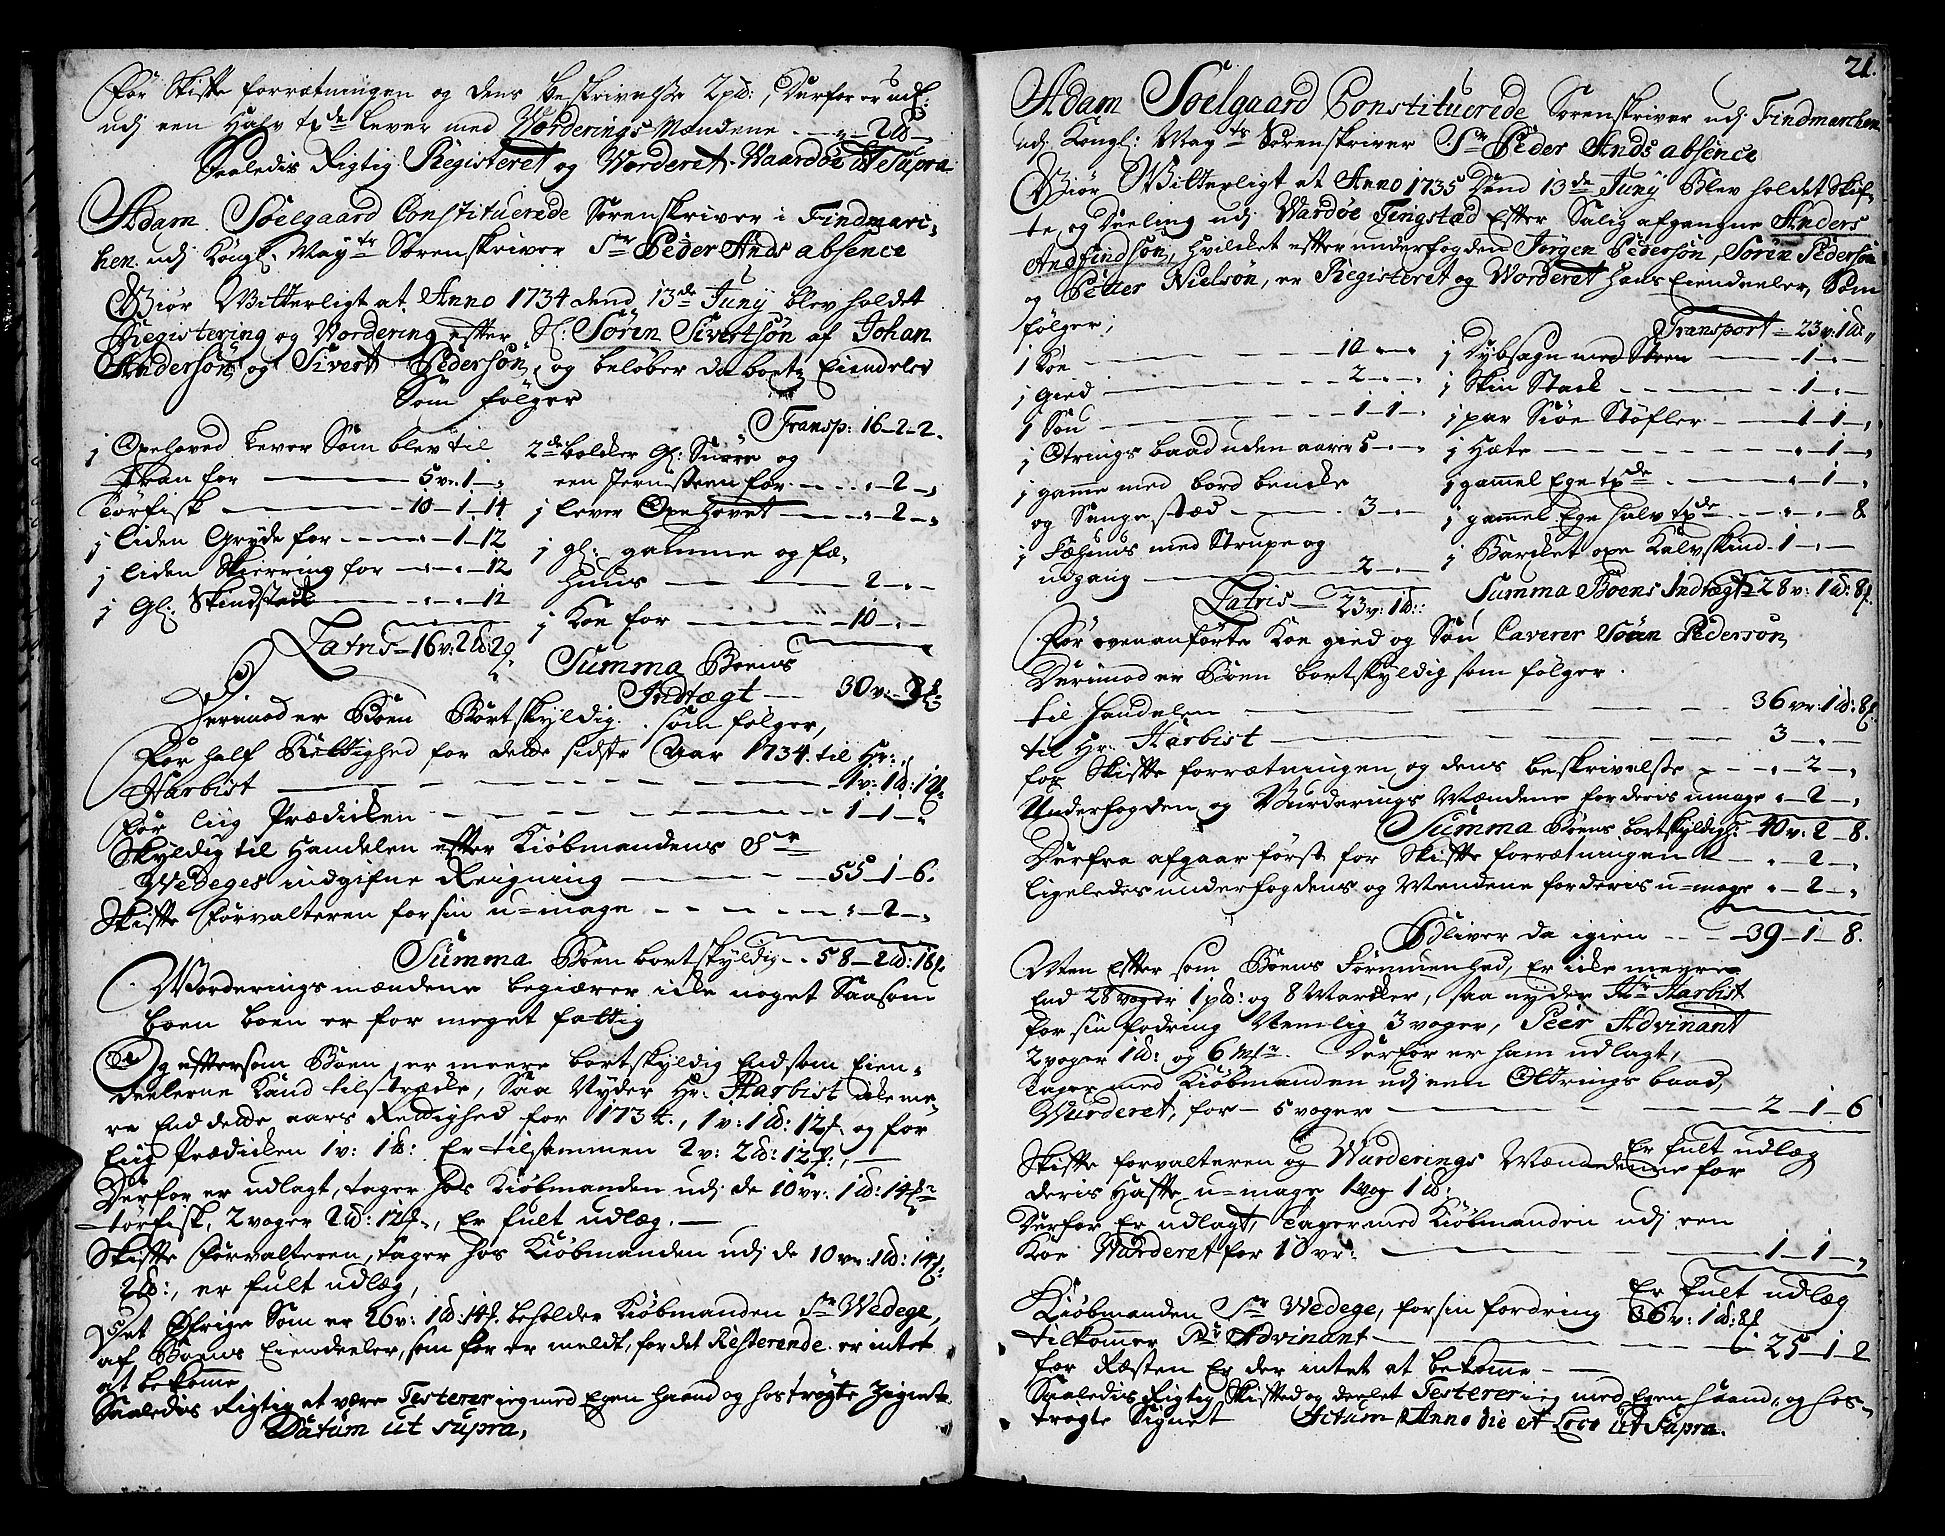 For Skifte forrætningen og dens beskrivelse 2 pd:, Derfor er udl:
udj een Halv tøde lever med Worderings Mændene - - „ - 2 pd -
Saaledis Rigtig Registeret og Worderet. Waardøe Ut Supra
Adam Soelgaard Constituerede Sorenskriver i Findmarc-
hen udj Kongl: Mayts Sorenskriver Sr Peder Ands absence
Giør Witterligt at Anno 1734 dend 13de Junij blev holdet
Registering og Wordering efter Sl: Søren Sivertsøn af Johan
Andersøn, og Sivert Pedersøn, og beløber da boets Eiendeler
Som følger
j Oxehoved Lever Som blev til
Tran for — 5 vr: 1 - „
Tørfisk — 10 - 1 - 14
j liden Gryde for - - - „ - 1 - 12
j liden Skierring for - „ - „ - 12
j Gl: Skindstack — „ - „ - 12
Latris - 16 v: 2 pd: 2 f.
Transp: 16 - 2 - 2.
2de bolder Gl: Snøre og
een Jernsteen for - - - „ - 2 - „
j lever Oxehovet - - - „ - 2 - „
j gl: gamme og fæ-
huus — 2 - „ -
j Koe for — 10 - „ -
Summa Boens
Indtægt — 30 v: - 2 f:
Derimod er Boen Bortskyldig som følger,
For half Rettighed for dette sidste Aar 1734 til Hr:
Harbist — 1 v: 1 pd: 12 f.
for liig Prædiken — 1 - 1 - „
Skyldig til Handelen efter Kiøbmandens Sr
Wedeges indgifne Reigning — 55 - 1 - 6.
Skifte forvalteren for sin u=mage - - - „ - 2 - „
Summa Boen bortskyldig - - 58 - 2 pd: 18 f.
Worderings mændene begiærer icke noget Saasom
boen boen er for meget fattig
Og eftersom Boen er meere bortskyldig End som Eien-
deelerne Kand tilstræcke, Saa Nyder Hr: Harbist icke me-
re End dette aars Rettighed for 1734, 1 v: 1 pd: 12 f. og for
Liig Prædicken 1 v: 1 pd: Er tilsammen 2 v: 2 pd: 12 f:, —
Derfor er udlagt, tager hos Kiøbmanden udj de 10 vr: 1 pd: 14 f.
tørfisk, 2 voger 2 pd: 12 f., Er fult udlæg. —
Skifte forvalteren, tager hos Kiøbmanden udj de 10 vr: 1 pd: 14 f.
2 pd:, er fult udlæg,
Det Øfrige Som er 26 v: 1 pd: 14 f. beholder Kiøbmanden Sr Wedege,
af Boens Eiendeeler, som før er meldt, for det Resterende er intet
at bekome
Saaledes Rigtig at være Testerer ieg med Egen haand og hostrøgte Zignete
Datum ut supra,
21.
Adam Soelgaard Constituerede Sorenskriver udj Findmarchen
udj Kongl: Mayts Sorenskriver Sr Peder Ands absence
Giør Witterligt at Anno 1735 Dend 13de Junij Blev holdet Skif-
te og Deeling udj Wardøe Tingstæd Efter Salig afgangne Anders
Andfindsøn, hvilcket efter underfogden Jørgen Pedersøn, Søren Pedersøn
og Petter Nielsøn, er Registeret og Worderet hans Eiendeeler, Som
følger;
1 Koe — 10 „ - „
j gied — 2 - „ - „
1 Søu — 1 - 1 - „
j Otrings baad uden aarer 5 - „ - „
j gamme med bord bencke
og Sengestæd - - - 3 - „ -
j Fæhuus med Strupe og
udgang — 2 - „ -
Latris — 23 v: 1 pd:
Transport - 23 v: 1 pd „
j Dybsagn med Steen — 1 - „ -
j Skin Stack — 1 - „ -
j par Siøe Støfler — 1 - 1 - „
j Hæte — „ - 1 - „
j gammel Ege tøde - - - „ - 1 - „
j gammel Ege halv tøde - - „ - „ - 8
j Barcket oxe Kalvskind - 1 - „ -
Summa Boens Indtægt 28 v: 1 pd: 8 f.
For ovenanførte Koe gied og Søu Caverer Søren Pedersøn,
Derimod er Boen bortskyldig som følger
til Handelen — 36 vr: 1 pd: 8 f.
til Hr: Harbist — 3 - „ -
for Skifte forrætningen og dens beskrivelse - - „ - 2 - „
Underfogden og Vurderings Mændene for deris umage „ - 2 - „
Summa Boens bortskyldigh: 40 v: 2 - 8.
Derfra afgaar først for Skifte forrætningen - „ - 2 - „
ligeledes underfogdens og Mendene for deris u=mage „ - 2 - „
Bliver da igien - - 39 - 1 - 8.
Men Efter som Boens Formuenhed, Er icke meere
End 28 voger 1 pd: og 8 Marcker, saa nyder Hr Harbist
for sin fodring Nemlig 3 voger, Peer Advinant
2 voger 1 pd: og 6 mkr. Derfor er ham udlagt,
Tager med Kiøbmanden udj een Ottrings baad,
Wurderet, for - 5 voger — 2 - 1 - 6
Er fult udlæg
Skifte forvalteren og Wurderings Mændene for
deris Hafte u=mage 1 vog 1 pd:
Derfor Er udlagt, Tager med Kiøbmanden udj een
Koe Wurderet for 10 vr: — 1 - 1 - „
Er fult udlæg
Kiøbmanden Sr Wedege, for sin fordring 36 v: 1 pd: 8 f
tilkommer Pr Advinant — 25 - 1 - 2
for Ræsten Er der intet at bekomme -
Saaledis Rigtig Skifted og deelet Testerer ieg med Egen haand, og hos-
trøgte Signet Actum Anno die et Loco ut Supra.